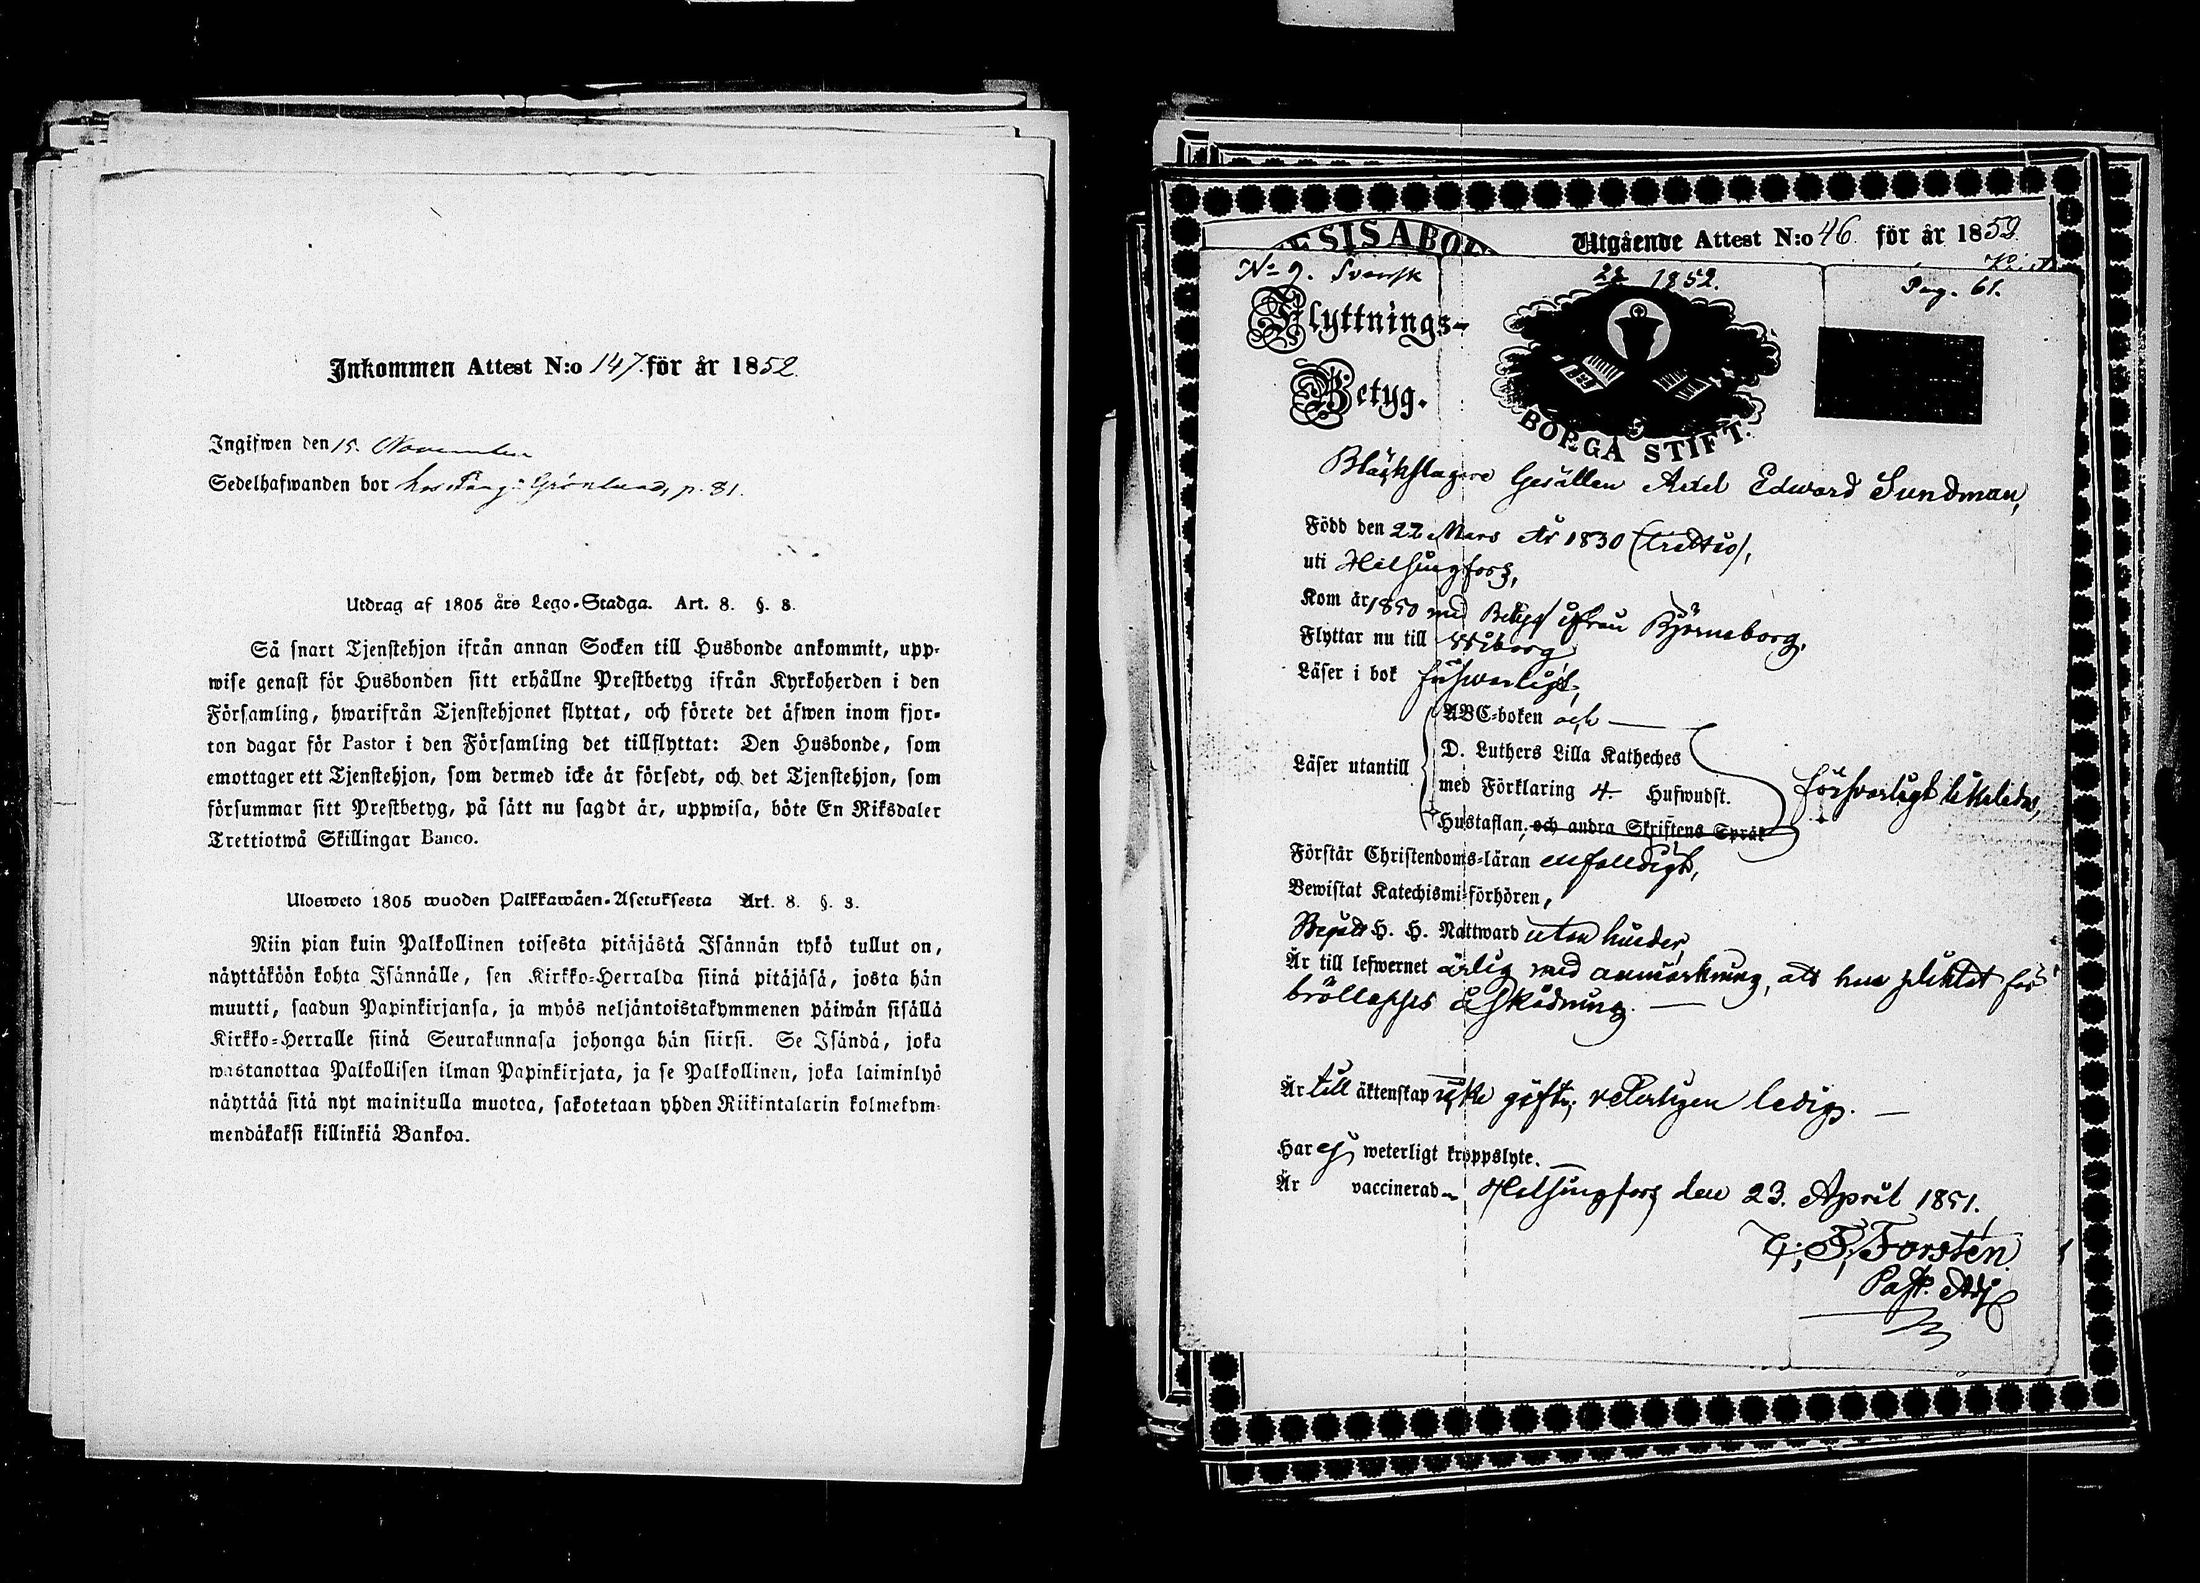 Inkommen Attest N:o 147. för år 1852.
Ingifwen den 15. November
Sedelhafwanden bor hos Grönlund, p. 81.
Utdrag af 1805 års Lego-Stadga. Art. 8. §. 8.
Så snart Tjenstehjon ifrån annan Socken till Husbonde ankommit, upp-
wise genast för Husbonden sitt erhållne Prestbetyg ifrån Kyrkoherden i den
Församling, hwarifrån Tjenstehjonet flyttat, och förete det äfwen inom fjor-
ton dagar för Pastor i den Församling det tillflyttat: Den Husbonde, som
emottager ett Tjenstehjon, som dermed icke är försedt, och det Tjenstehjon, som
försummar sitt Prestbetyg, på sätt nu sagdt är, uppwisa, böte En Riksdaler
Trettiotwå Skillingar Banco.
Ulosweto 1805 wuoden Palkkawäen-Asetuksesta Art. 8. §. 8.
Niin pian kuin Palkollinen toisesta pitäjästä Isännän tykö tullut on,
näyttäköön kohta Isännälle, sen Kirkko-Herralda siinä pitäjäsä, josta hän
muutti, saadun Papinkirjansa, ja myös neljäntoistakymmenen päiwän sisällä
Kirkko-Herralle siinä Seurakunnasa johonga hän siirsi. Se Isändä, joka
wastanottaa Palkollisen ilman Papinkirjata, ja se Palkollinen, joka laiminlyö
näyttää sitä nyt mainitulla muotoa, sakotetaan yhden Riikintalarin kolmekym-
mendäkaksi killinkiä Bankoa.
Utgående Attest N:o 46. för år 1852.
N:o 9. Svensk
1852.
Pag. 61.
Flyttnings-
Betyg.
BORGÅ STIFT.
Bläckslagare Gesällen Axel Edward Sundman,
Född den 22 Mars år 1830 (trettio),
uti Helsingfors,
Kom år 1850 med Betyg ifrån Björneborg,
Flyttar nu till Wiborg
Läser i bok försvarligt,
ABC-boken och
Läser utantill D. Luthers Lilla Katheches
med Förklaring 4. Hufwudst. försvarligt likaledes,
Hustaflan, och andra Skriftens Språk
Förstår Christendoms-läran enfalldigt,
Bewistat Katechismi-förhören,
Begått H. H. Nattward utan hinder,
Är till lefwernet ärlig med anmärkning, att han pliktat för
bröllopps åskådning.
Är till äktenskap icke gift, veterligen ledig.
Har ej weterligt kroppslyte.
Är vaccinerad. Helsingfors den 23. April 1851.
Forstén.
Past. Adj.